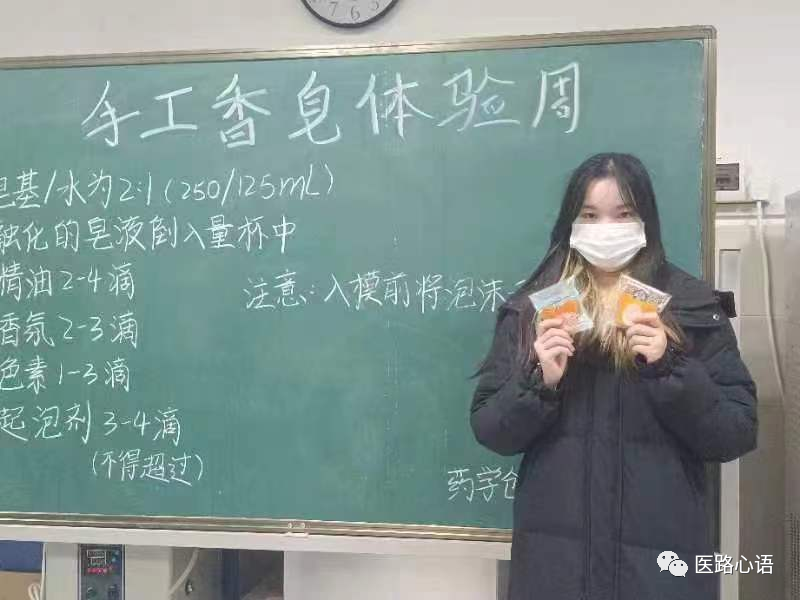 7 6 5
手工香皂体验周
皂基/水为2:1(250/125mL)
融化的皂液倒入量杯中
精油2-4滴
香氛2-3滴
色素1-3滴
起泡剂3-4滴
(不得超过)
注意:入模前将泡沫
药学创
医路心语